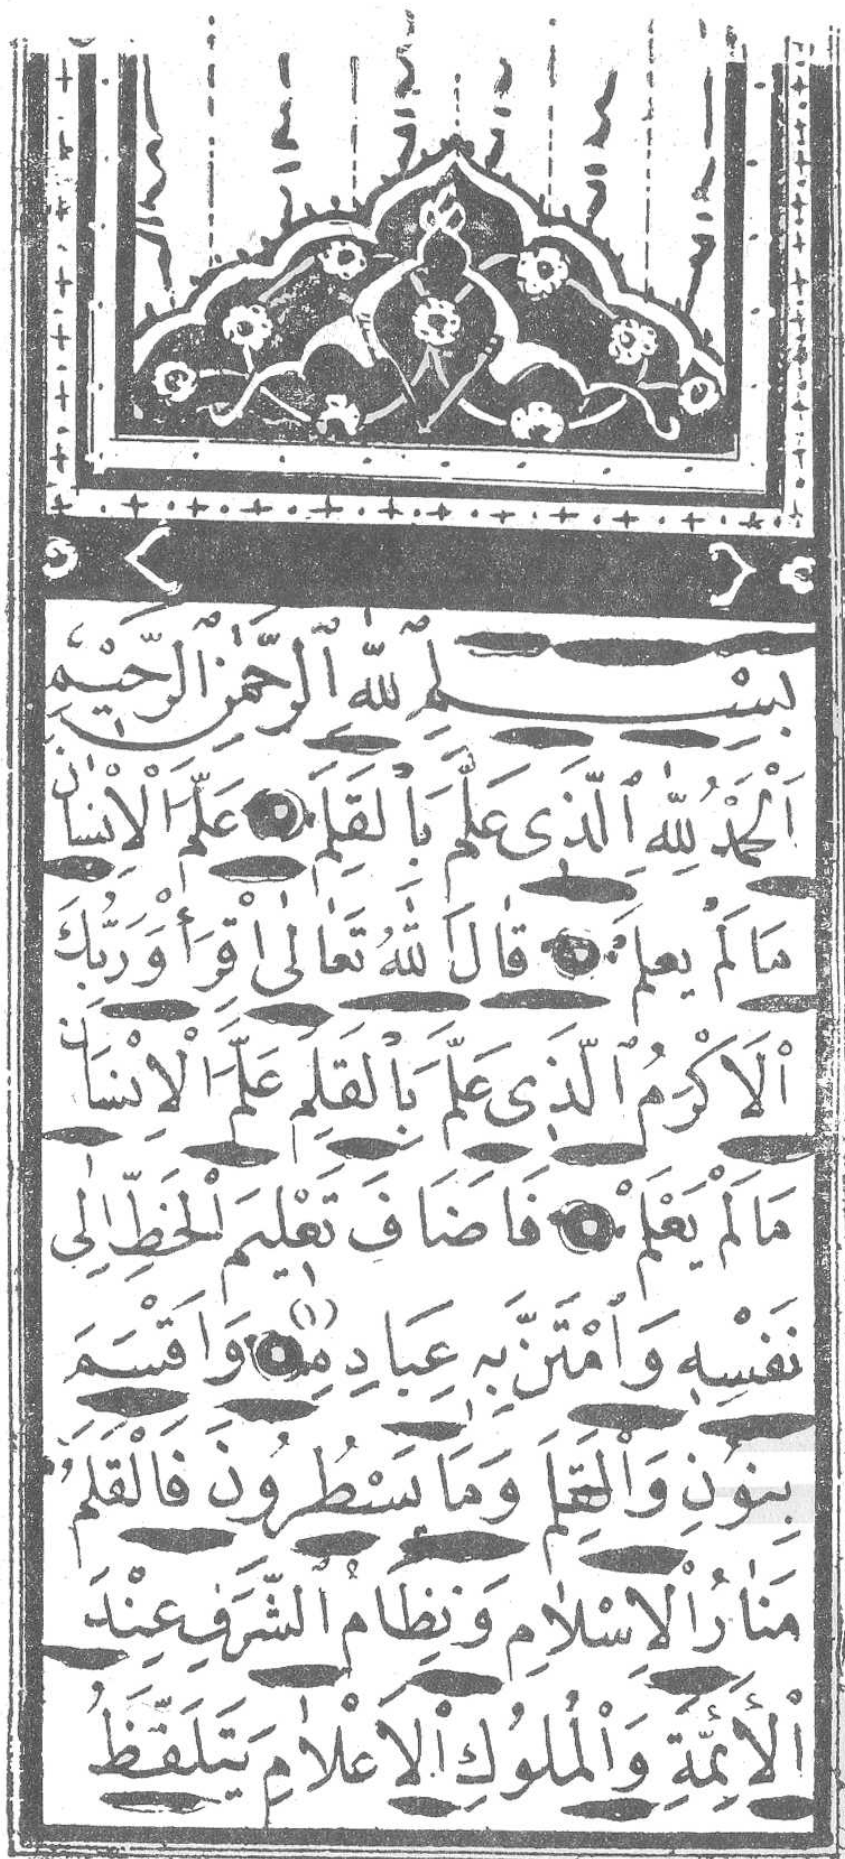 بِسْمِ ٱللّٰهِ ٱلرَّحْمٰنِ ٱلرَّحِيْمِ
اَلْحَمْدُ لِلّٰهِ ٱلَّذِى عَلَّمَ بِٱلْقَلَمِ عَلَّمَ اَلْاِنْسٰانَ
مَا لَمْ يَعْلَمْ قٰالَ ٱللّٰهُ تَعٰالٰى اِقْرَأْ وَرَبُّكَ
اْلاَكْرَمُ ٱلَّذِى عَلَّمَ بِٱلْقَلَمِ عَلَّمَ اْلاِنْسَانَ
مَا لَمْ يَعْلَمْ فَاَضَافَ تَعْلِيمَ اْلخَطِّ اِلٰى
نَفْسِهِ وَٱمْتَنَّ بِهِ عِبَادِهِ (١) وَاَقْسَمَ
بِنُونِ وَاْلقَلَمِ وَمَا يَسْطُرُونَ فَاْلقَلَمُ
مَنٰارُ اْلاِسْلاٰمِ وَنِظَامُ ٱلشَّرَفِ عِنْدَ
اْلأَئِمَّةِ وَاْلمُلُوكِ اْلاَعْلاٰمِ يَتَلَفَّظُ